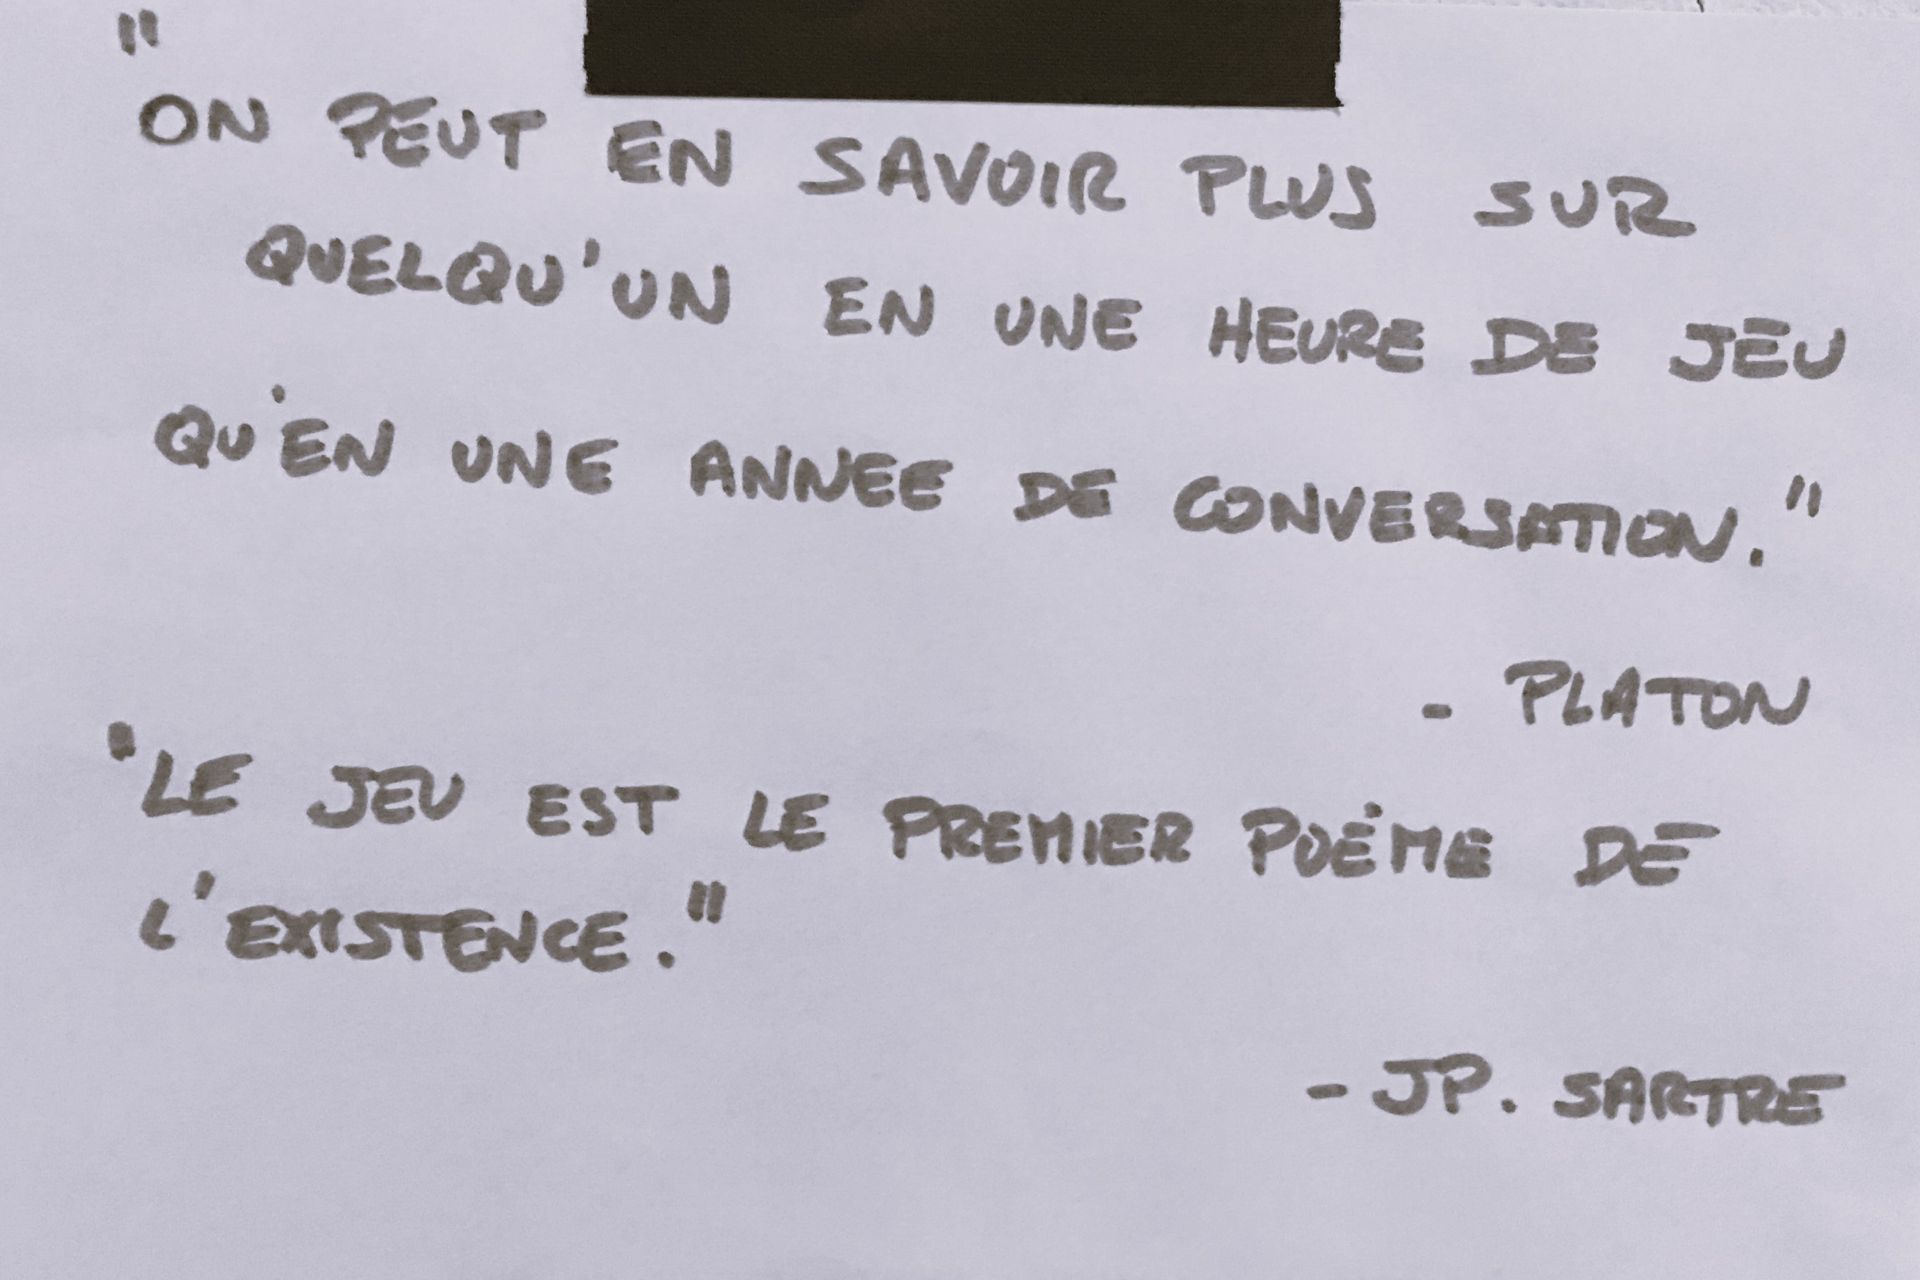 "
ON PEUT EN SAVOIR PLUS SUR
QUELQU'UN EN UNE HEURE DE JEU
QU'EN UNE ANNEE DE CONVERSATION."
- PLATON
"LE JEU EST LE PREMIER POÈME DE
L'EXISTENCE."
- JP. SARTRE